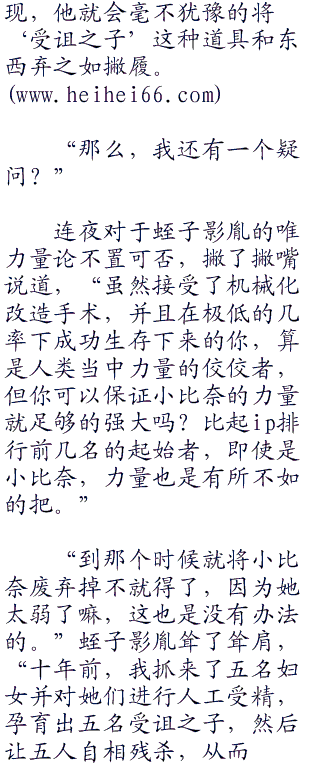 现，他就会毫不犹豫的将
‘受诅之子’这种道具和东
西弃之如撇履。
(www.heihei66.com)
“那么，我还有一个疑
问？”
连夜对于蛭子影胤的唯
力量论不置可否，撇了撇嘴
说道，“虽然接受了机械化
改造手术，并且在极低的几
率下成功生存下来的你，算
是人类当中力量的佼佼者，
但你可以保证小比奈的力量
就足够的强大吗？比起ip排
行前几名的起始者，即使是
小比奈，力量也是有所不如
的把。”
“到那个时候就将小比
奈废弃掉不就得了，因为她
太弱了嘛，这也是没有办法
的。”蛭子影胤耸了耸肩，
“十年前，我抓来了五名妇
女并对她们进行人工受精，
孕育出五名受诅之子，然后
让五人自相残杀，从而